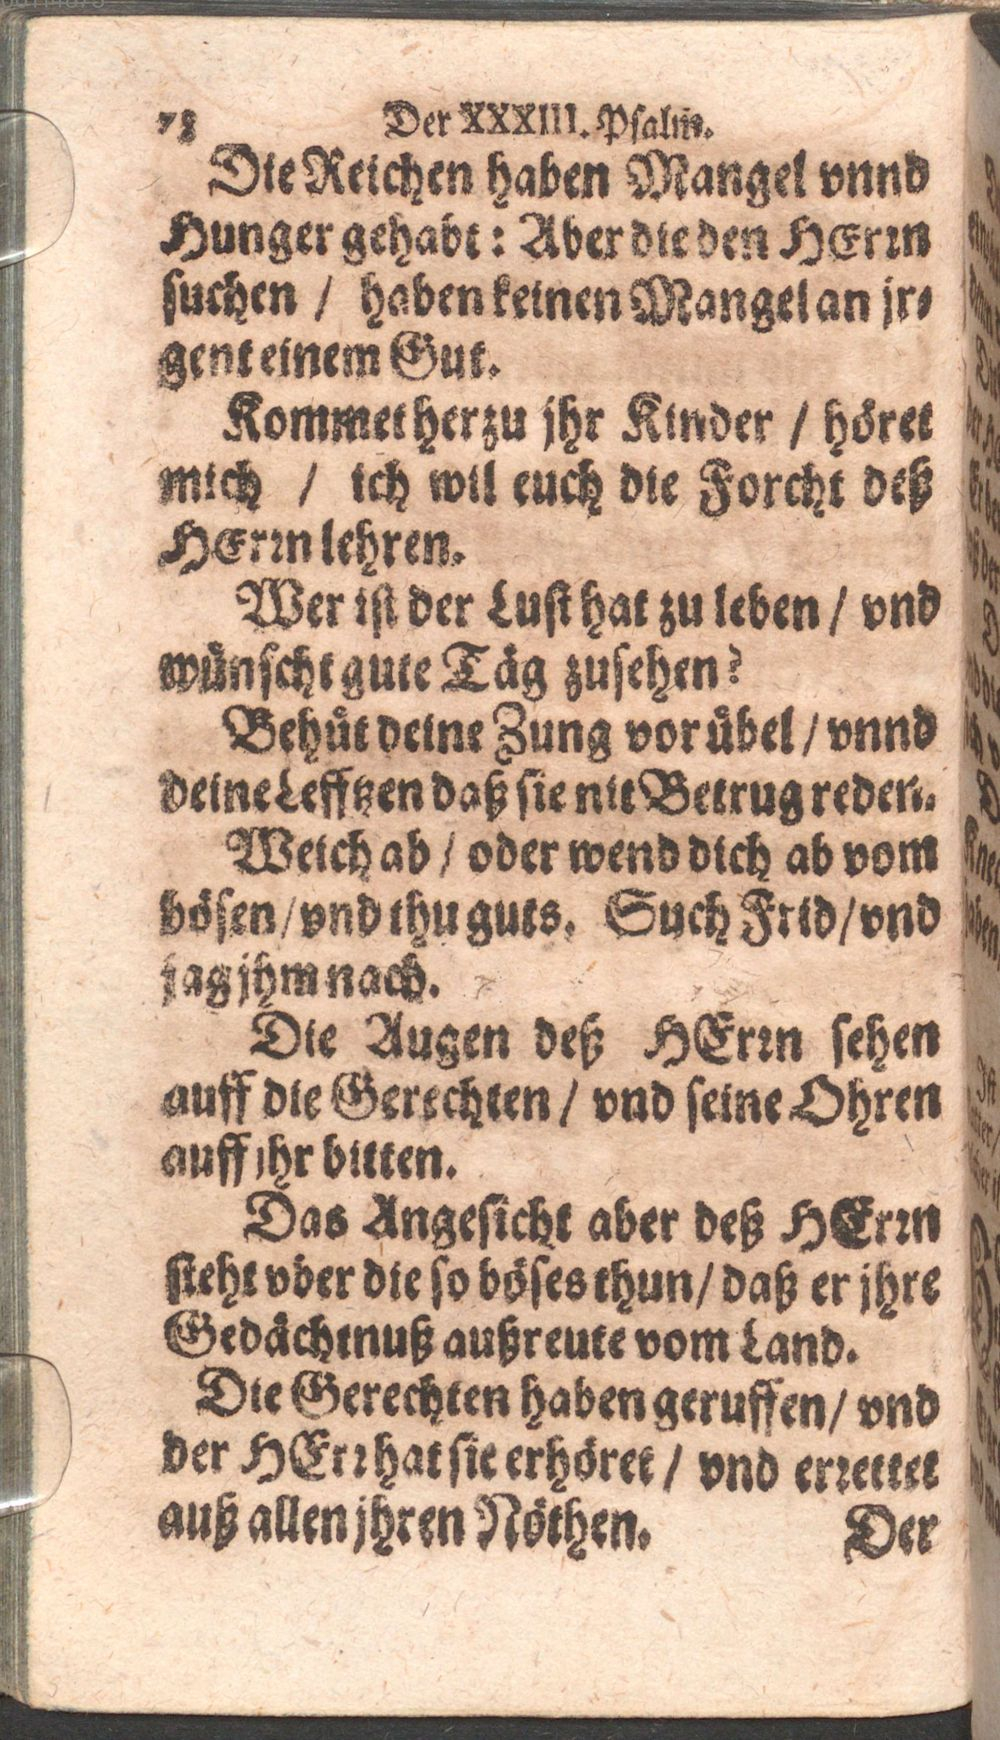 78 Der XXXIII. Psalm.
Die Reichen haben Mangel vnnd
Hunger gehabt: Aber die den HErrn
suchen / haben keinen Mangel an jr⸗
gent einem Gut.
Kommet herzu jhr Kinder / höret
mich / ich wil euch die Forcht deß
HErrn lehren.
Wer ist der Lust hat zu leben / vnd
wünscht gute Täg zusehen?
Behüt deine Zung vor übel / vnnd
deine Lefftzen daß sie nit Betrug reden.
Weich ab / oder wend dich ab vom
bösen / vnd thu guts. Such Frid / vnd
jag jhm nach.
Die Augen deß HErrn sehen
auff die Gerechten / vnd seine Ohren
auff jhr bitten.
Das Angesicht aber deß HErrn
steht vber die so böses thun / daß er jhre
Gedächtnuß außreute vom Land.
Die Gerechten haben geruffen / vnd
der HErr hat sie erhöret / vnd errettet
auß allen jhren Nöthen. Der